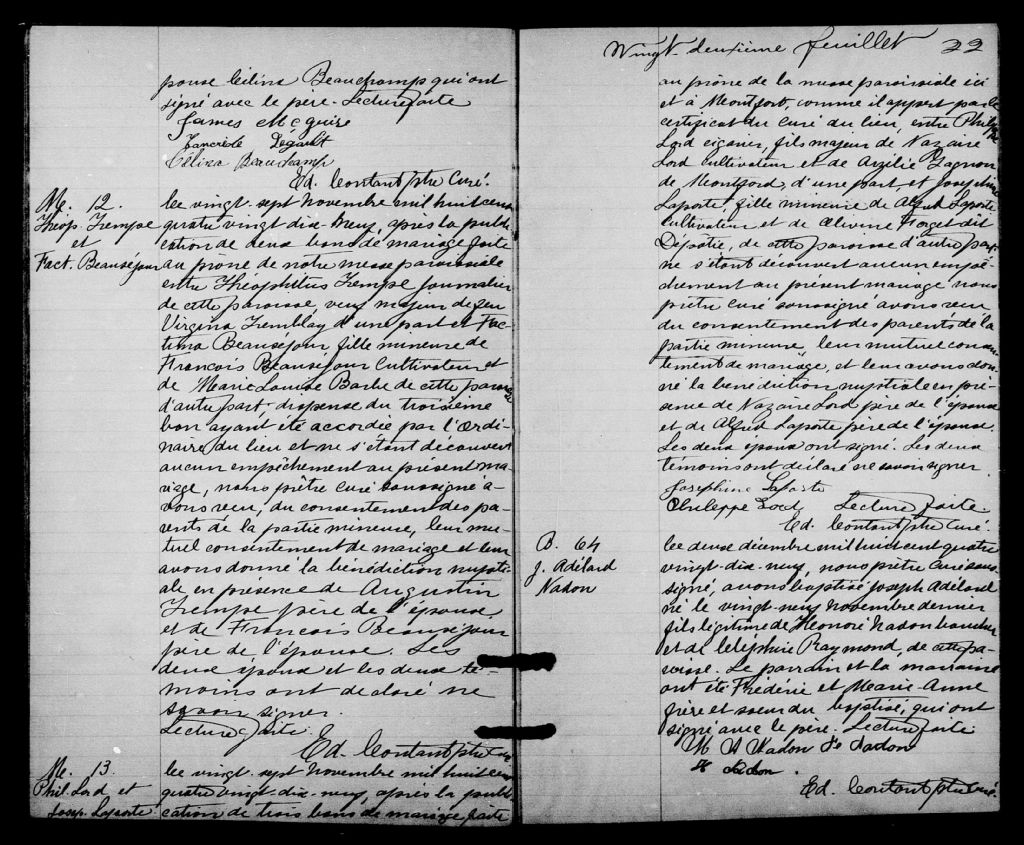 pouse Célina Beauchamp qui ont
signé avec le père. Lecture faite
James McGuire
Tancrède Legault
Célina Beauchamp
Ed. Contant ptre Curé.
M. 12.
Théop. Trempe
et
Fact. Beauséjour
Le vingt sept novembre mil huit cent
quatre vingt dix-neuf, après la publi
cation de deux bans de mariage faite
au prône de notre messe paroissiale
entre Théophilus Trempe journalier
de cette paroisse veuf majeur de feu
Virginia Tremblay d'une part et Fac-
tima Beauséjour fille mineure de
François Beauséjour Cultivateur et
de Marie Louise Barbe de cette paroisse
d'autre part; dispense du troisième
ban ayant été accordée par l'Ordi-
naire du lieu et ne s'étant découvert
aucun empêchement au présent ma
riage, nous prêtre curé soussigné a-
vons reçu, du consentement des pa-
rents de la partie mineure, leur mu-
tuel consentement de mariage et leur
avons donné la bénédiction nupti-
ale en présence de Augustin
Trempe père de l'époux
et de François Beauséjour
père de l'épouse. Les
deux époux et les deux té-
moins ont déclaré ne
savoir signer.
Lecture faite.
Ed. Contant ptre curé
M. 13.
Phil. Lord et
Josep. Laporte
Le vingt sept novembre mil huit cent
quatre vingt dix-neuf, après la publi
cation de trois bans de mariage faite
Vingt-deuxième feuillet 22
au prône de la messe paroissiale ici
et à Montfort, comme il appert par le
certificat du curé du lieu, entre Philippe
Lord cigarier, fils majeur de Nazaire
Lord cultivateur et de Arzélie Gagnon
de Montford, d'une part et Joséphine
Laporte, fille mineure de Alfred Laporte
Cultivateur et de Olivine Forget dit
Dépatie, de cette paroisse d'autre part
ne s'étant découvert aucun empê-
chement au présent mariage nous
prêtre curé soussigné avons reçu
du consentement des parents de la
partie mineure, leur mutuel consen-
tement de mariage, et leur avons don-
né la bénédiction nuptiale en pré-
sence de Nazaire Lord père de l'époux
et de Alfred Laporte père de l'épouse.
Les deux époux ont signé. Les deux
témoins ont déclaré ne savoir signer
Josephine Laporte
Philippe Lord Lecture faite.
Ed. Contant ptre Curé.
B. 64
J. Adélard
Nadon
Le deux décembre mil huit cent quatre
vingt-dix-neuf, nous prêtre Curé sous-
signé, avons baptisé Joseph Adélard
né le vingt-neuf Novembre dernier
fils légitime de Honoré Nadon boucher
et de Céléphire Raymond, de cette pa-
roisse. Le parrain et la marraine
ont été Frédéric et Marie-Anne
frère et soeur du baptisé, qui ont
signé avec le père. Lecture faite
M A Nadon Fr Nadon
H Nadon.
Ed. Contant ptre curé.